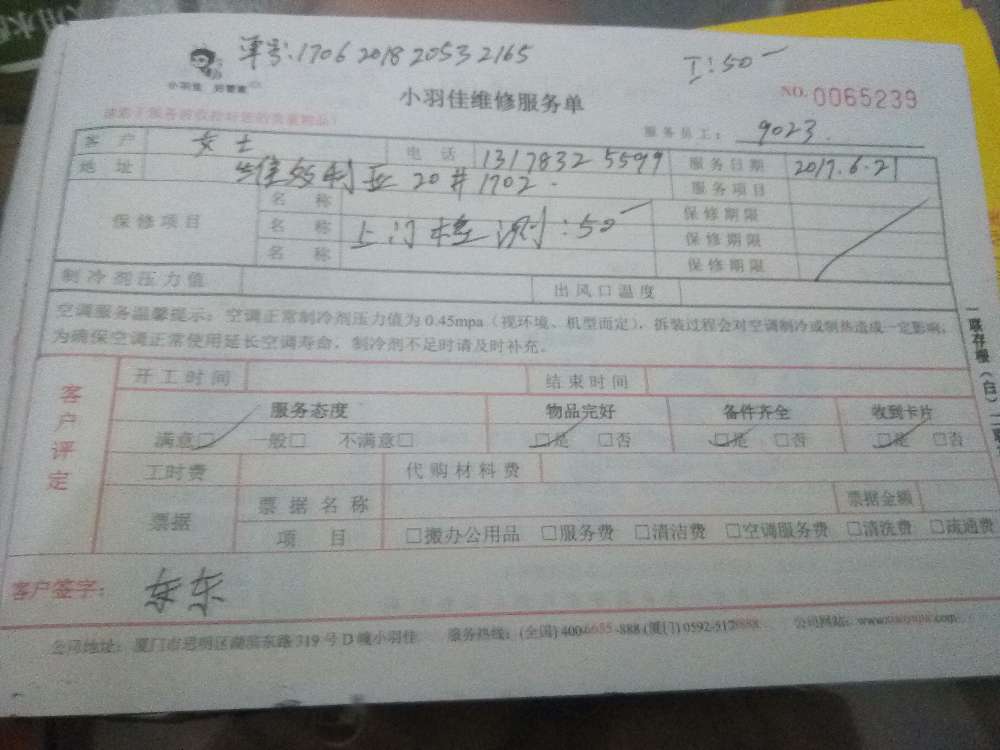 单号:1706 2018 2053 2165
工:50
小羽佳 好管家
小羽佳维修服务单
NO. 0065239
服务员工: 9023
客户 女士 电话 13178325599 服务日期 2017.6.21
地址 维多利亚20#1702 服务项目
保修项目
名称 保修期限
名称 上门检测:50 保修期限
名称 保修期限
制冷剂压力值 出风口温度
空调服务温馨提示:空调正常制冷剂压力值为0.45mpa(视环境、机型而定),拆装过程会对空调制冷或制热造成一定影响,
为确保空调正常使用延长空调寿命,制冷剂不足时请及时补充。
客户评定
开工时间 结束时间
服务态度 物品完好 备件齐全 收到卡片
满意□ 一般□ 不满意□ □是 □否 □是 □否 □是 □否
工时费 代购材料费
票据 票据名称 票据金额
项目 □搬办公用品 □服务费 □清洁费 □空调服务费 □清洗费 □疏通费
客户签字: 东东
公司地址:厦门市思明区湖滨东路319号D幢小羽佳 服务热线:(全国)400-6655-888(厦门)0592-5128888 公司网站:
一联存根(白)